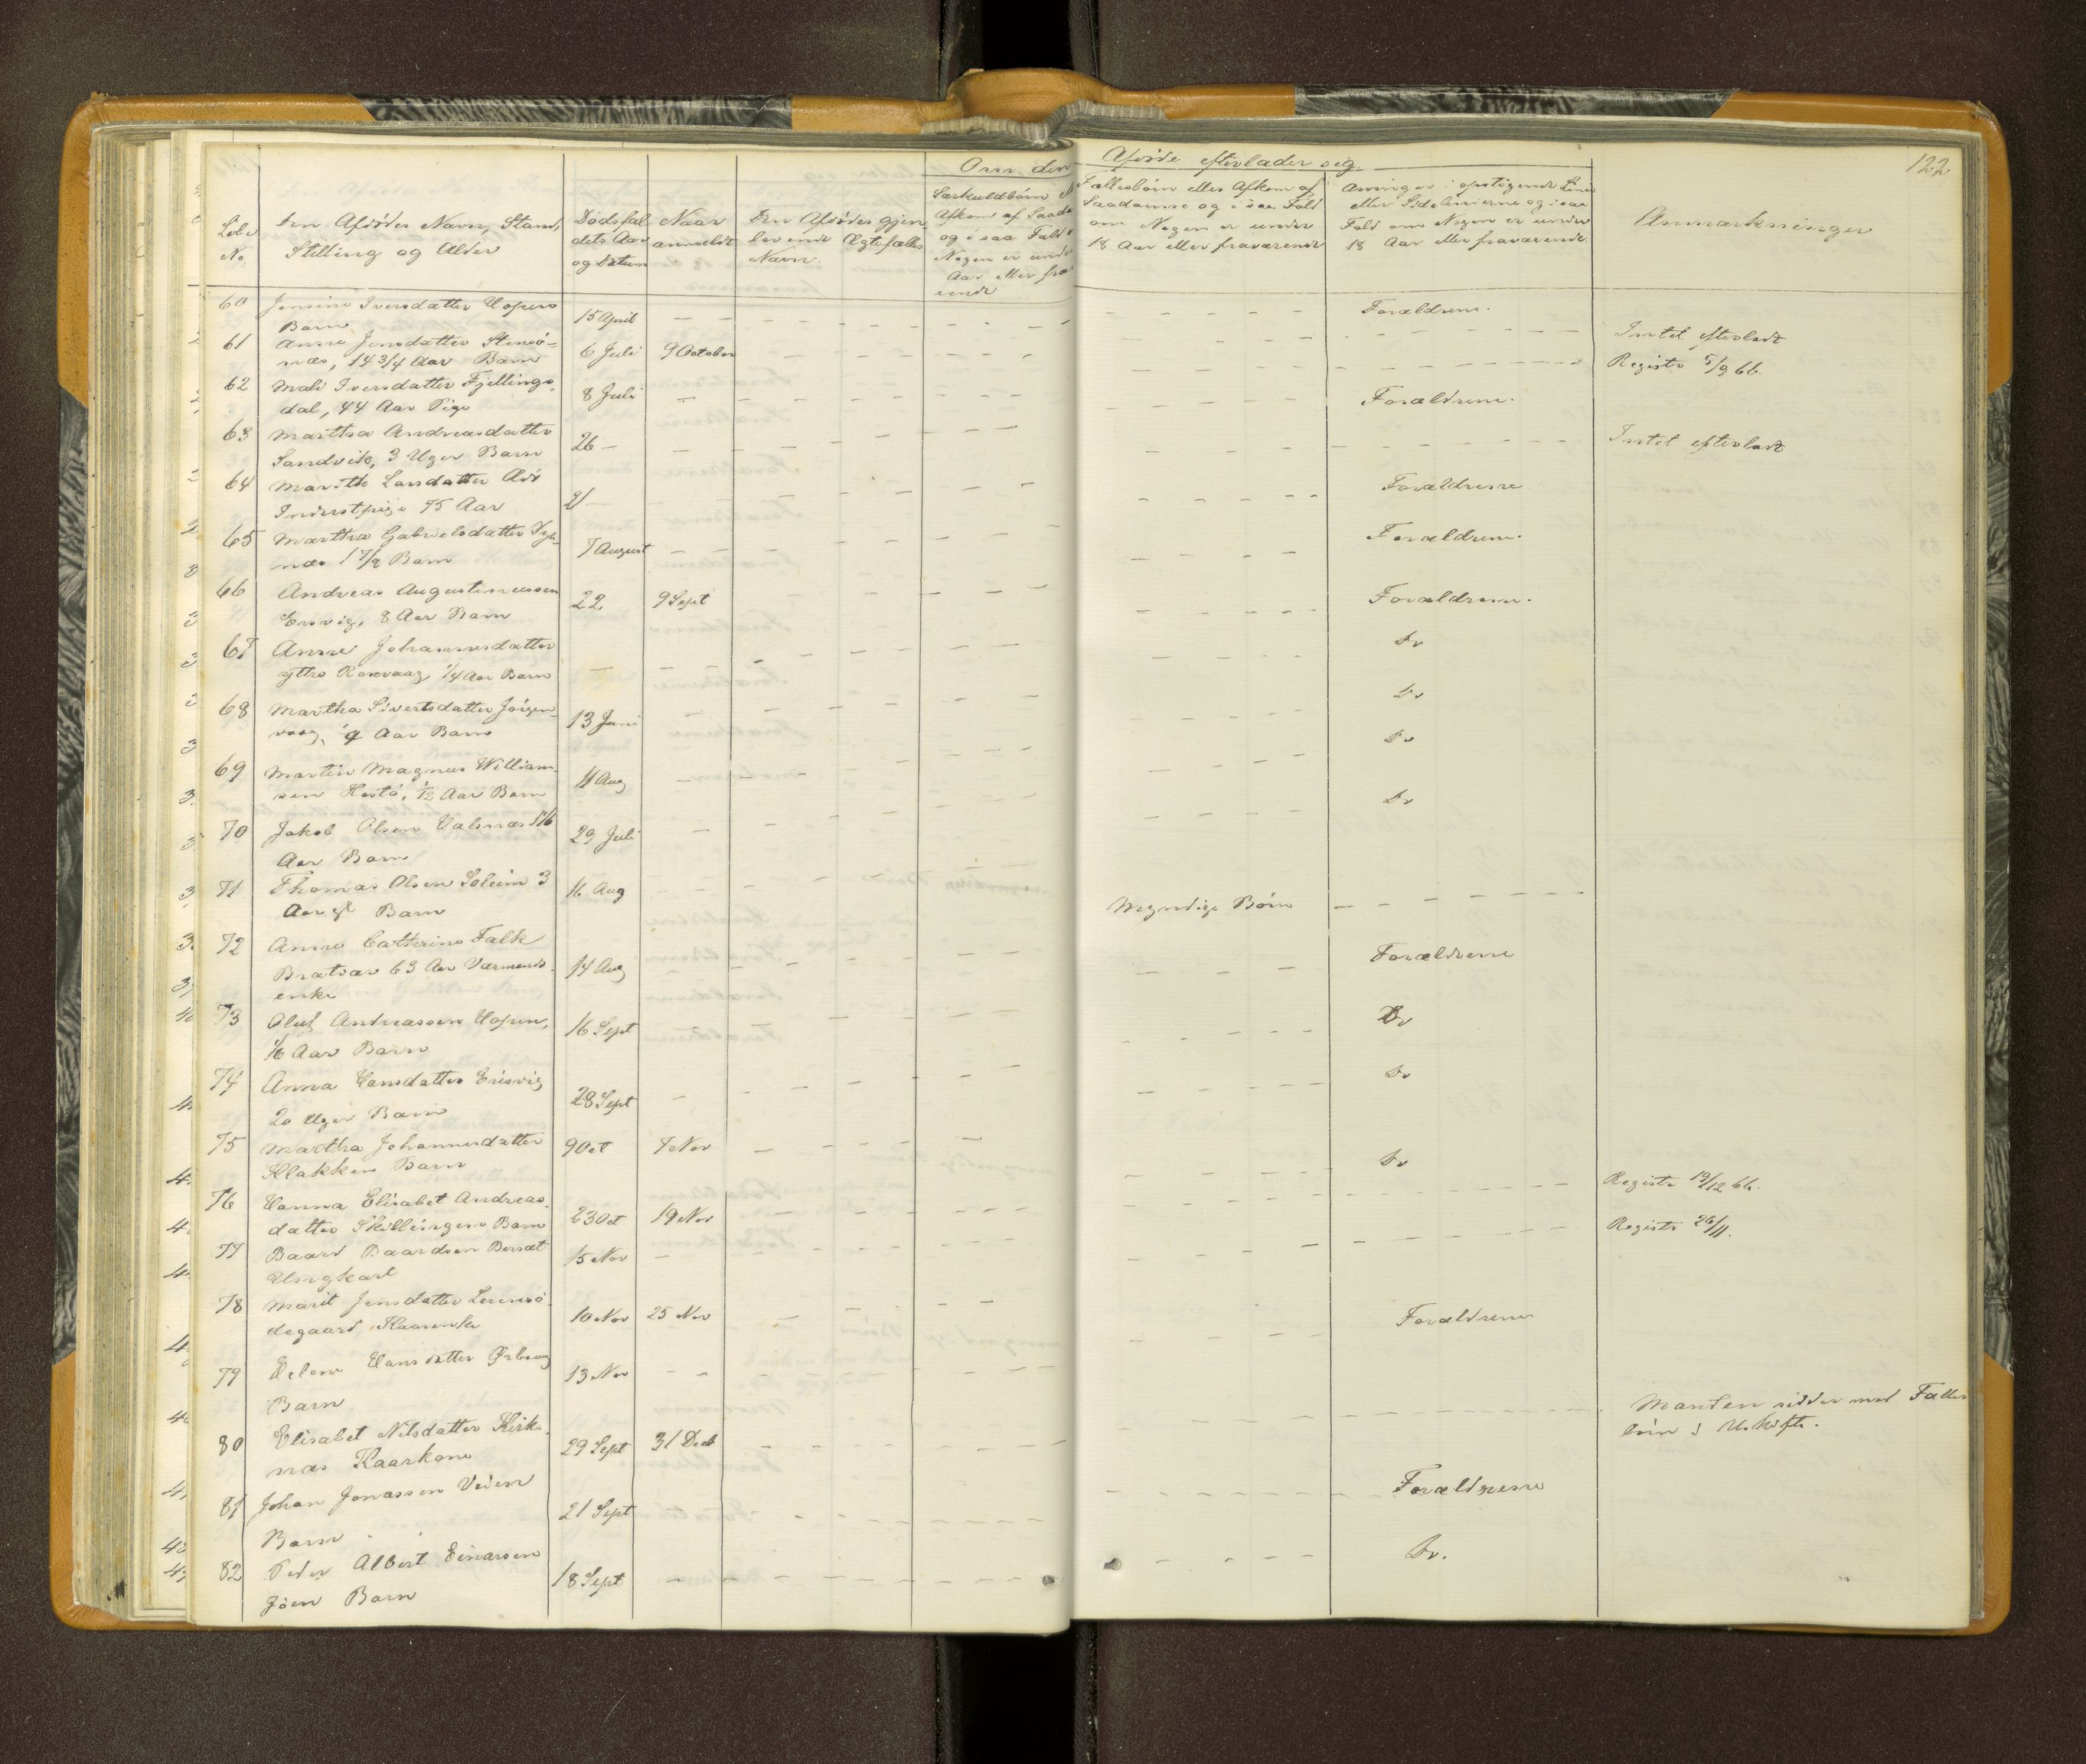 122
Om den Afdöde efterlader sig
Löbe
No
Den Afdödes Navn, Stand,
Stilling og Alder
Dødsfal
dets Aar
og Datum
Naar
anmeldt
Den Afdödes gjen
levende Ægtefælles
Navn.
Særkuldbörn
Afkom af Saada
og i saa Fald
Nogen er under
Aar eller fra
ende
Fællesbörn eller Afkom af
Saadanne og i saa Fald
om Nogen er under
18 Aar eller fraværende
Arvinger i opstigende Linie
eller Sidelinierne og i saa
Fald om Nogen er under
18 Aar eller fraværende
Anmærkninger
60 Jensine Iversdatter Hopen
Barn 15 April Forældrene.
61 Anne Jensdatter Stensö-
næs, 14 3/4 Aar Barn 6 Juli 9 October Intet efterladt
62 Mali Iversdatter Fjellings-
dal, 44 Aar Pige 8 Juli Registr 5/9 66.
63 Martha Andreasdatter
Sandvik, 3 Uger Barn 26 – Forældrene.
64 Marith Larsdatter
Inderstpige 75 Aar 21 – Intet efterladt
65 Martha Gabrielsdatter
næs Barn 7 August Forældrene
66 Andreas Augustinussen
8 Aar Barn 22 9 Sept Forældrene.
67 Anne Johannesdatter
yttre Rosvaag, 1/4 Aar Barn Forældrene.
68 Martha Sivertsdatter Jörgen-
vaag, Aar Barn 13 Juni Do
69 Martin Magnus William-
sen Hestö, 1/12 Aar Barn 11 Aug Do
70 Jakob Olsen Valsnæs
Aar Barn 29 Juli Do
71 Thomas Olsen Soleim 3
Aar gl Barn 16 Aug Do
72 Anne Cathrine Falk
Bratvær 63 Aar
enke 14 Aug Myndige Börn
73 Oluf Andreassen Hopen,
1/6 Aar Barn 16 Sept Forældrene
74 Anna Hansdatter
20 Uger Barn 28 Sept Do
75 Martha Johannesdatter
Klakken Barn 9 Oct 7 Nov Do
76 Hanna Elisabet Andreas-
datter Skillingen Barn 23 Oct 19 Nov Do
77 Baard Baardsen
Ungkarl 15 Nov Registr 13/12 66.
78 Marit Jensdatter
degaard, Kaarenke 10 Nov 25 Nov Registr 26/11.
79 Helene Hansdatter
Barn 13 Nov Forældrene
80 Elisabet Nilsdatter Kirke-
næs Kaarkone 29 Sept 31 Dec Manden sidder med Fælles
börn i Uskifte.
81 Johan Jonassen
Barn 21 Sept Forældrene
82 Peder Albert Einarsen
Barn 18 Sept Do.